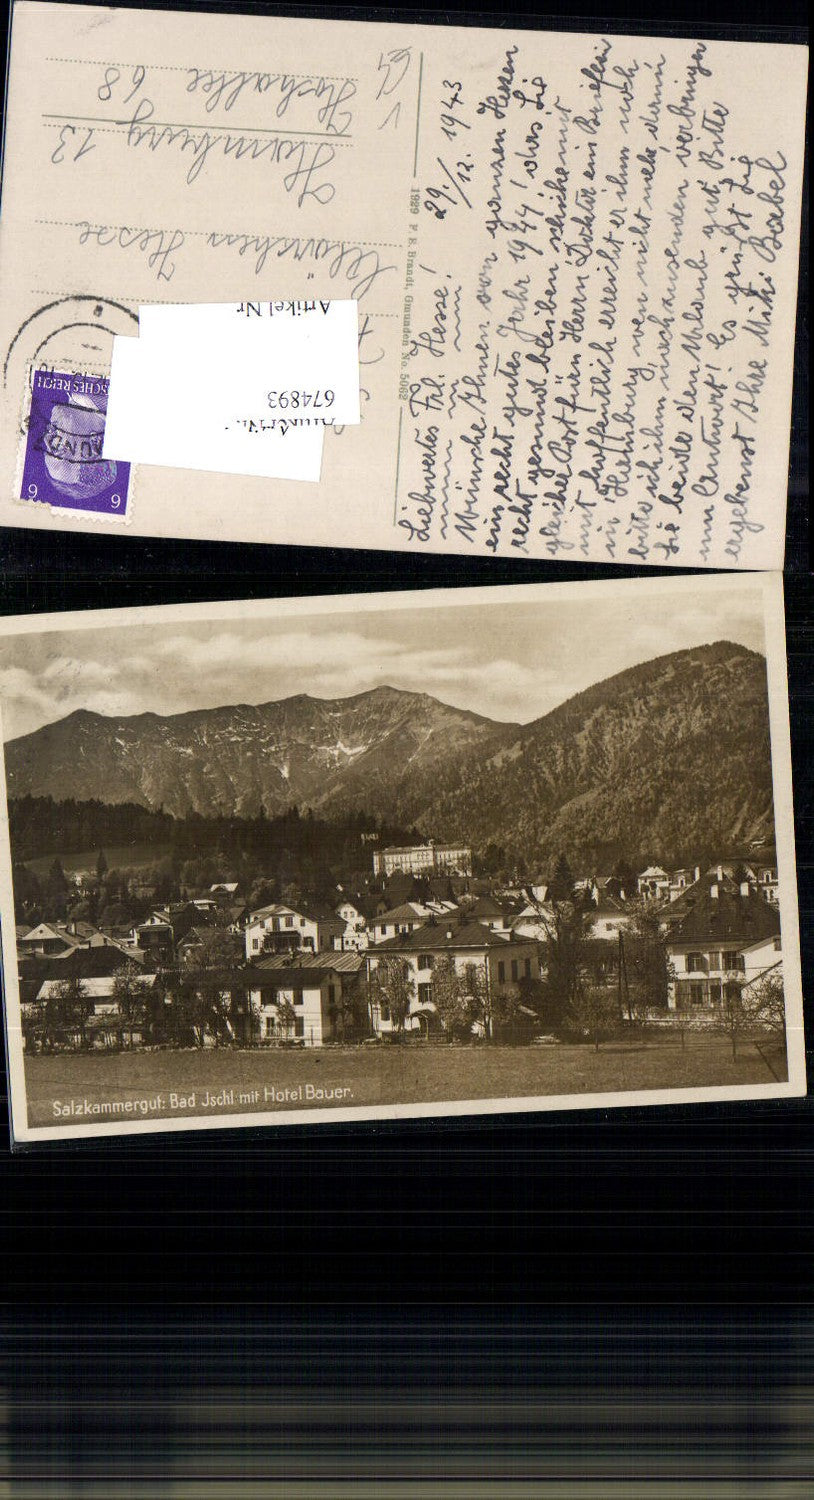 29./12. 1943
Liebwertes Frl. Hesse!
Wünsche Ihnen von ganzen Herzen
ein recht gutes Jahr 1944! dass Sie
recht gesund bleiben
gleicher Post für Herrn Doktor ein Brieflein
mit hoffentlich erreicht er ihm noch
in Hamburg, wen nicht mehr dann
bitte ich ihm nachzusenden
Sie beide den Urlaub gut, Bitte
um Antwort! Es grüßt Sie
ergebenst Ihre Mitzi Babel
1929 F. E. Brandt, Gmunden No. 5062
Klärchen Hesse
Hamburg 13
Hochallee 68
Artikel Nr.
674893
Artikel Nr.
DEUTSCHES REICH
6 6
Salzkammergut: Bad Jschl mit Hotel Bauer.